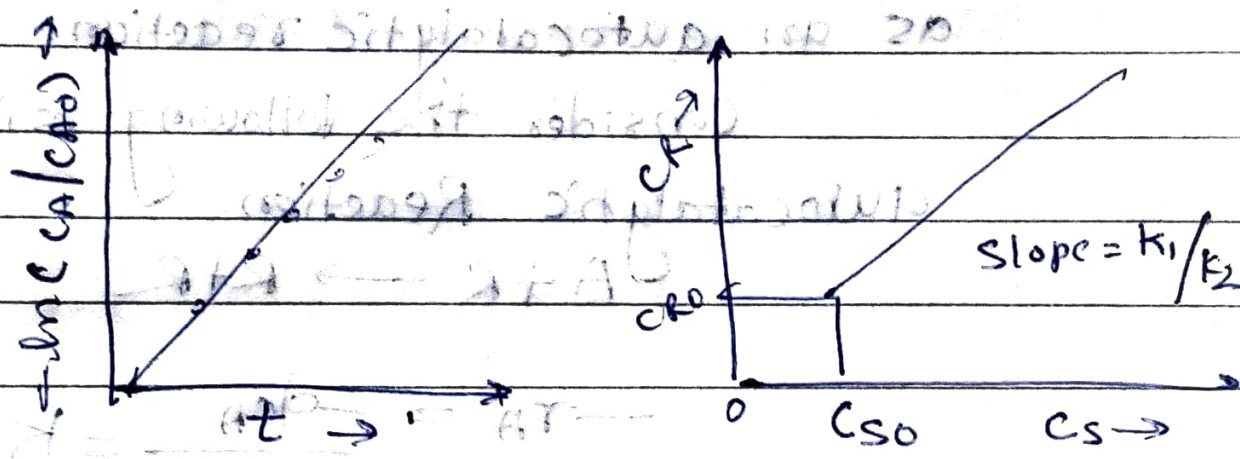 -ln ( CA/CA0) →
t →
CR →
CR0
Slope = K1/K2
0
CS0
CS →